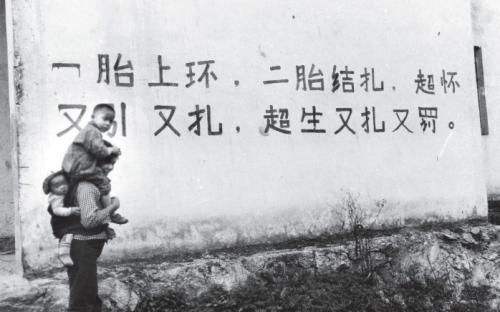 一胎上环，二胎结扎，超怀
又引又扎，超生又扎又罚。